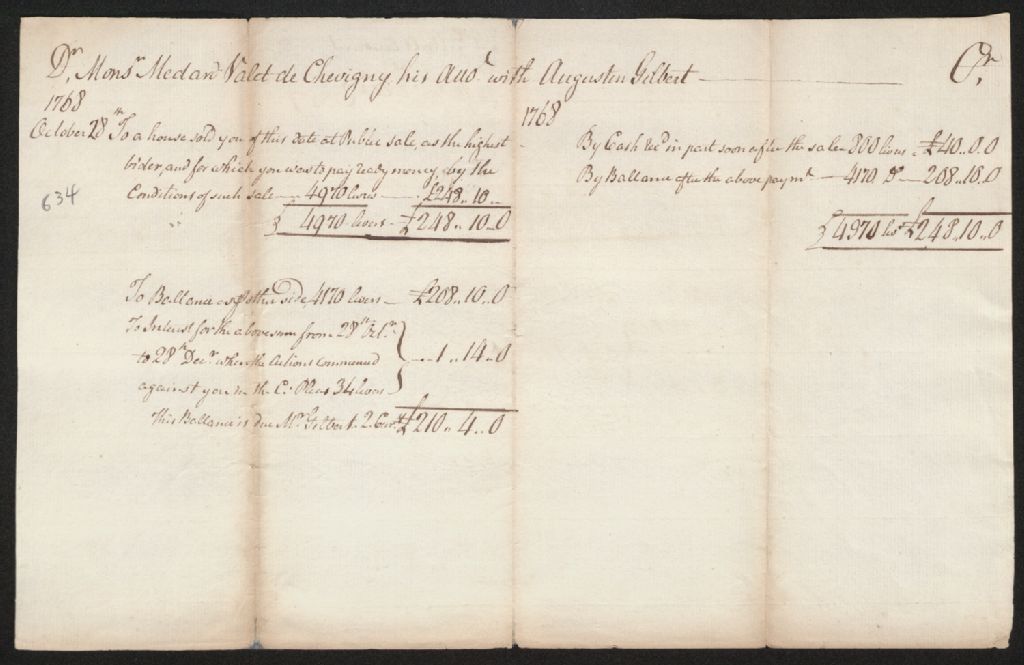 Dr. Monsr Medard Valet de Chevigny his Acco.t with Augustin Gilbert — Cr.
1768
October 28th To a house sold you of this date at Public sale, as the highest
bider, and for which you was to pay ready money, by the
Conditions of such sale — 4970 livres — £248..10..
4970 livers — £248..10..0
To Ballance as p other side, 4170 livers — £208..10..0
To Interest for the above sum from 28th Octr.
to 28th Decr. when the Actions commenced
against you in the C: Pleas 34 livers — ..1..14..0
This Ballance is due Mr. Gilbert £210..4..0
1768
By Cash Rec'd in part soon after the sale 800 livers — £40..0.0
By Ballance after the above paymt. — 4170, Do — 208..10.0
4970 livs £248..10..0
634